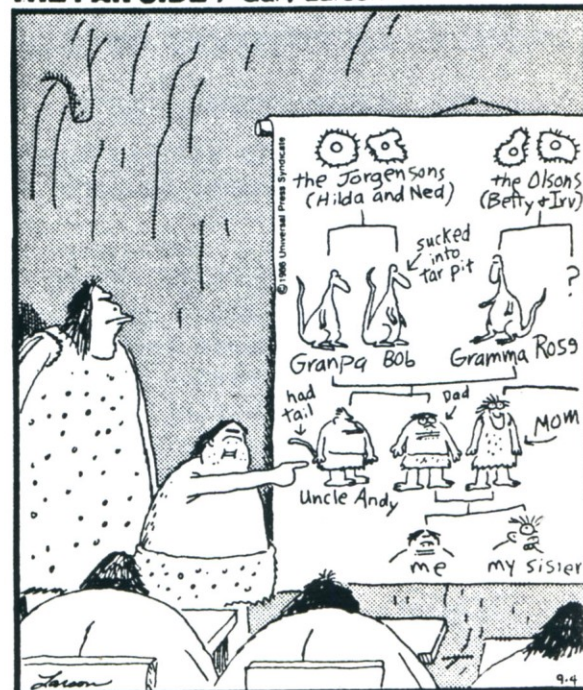 © 1986 Universal Press Syndicate
the Jorgensons
(Hilda and Ned)
the Olsons
(Betty + Irv)
sucked
into
tar pit
?
Granpa Bob
Gramma Rose
had
tail
Dad
MOM
Uncle Andy
me
my sister
Larson
9-4